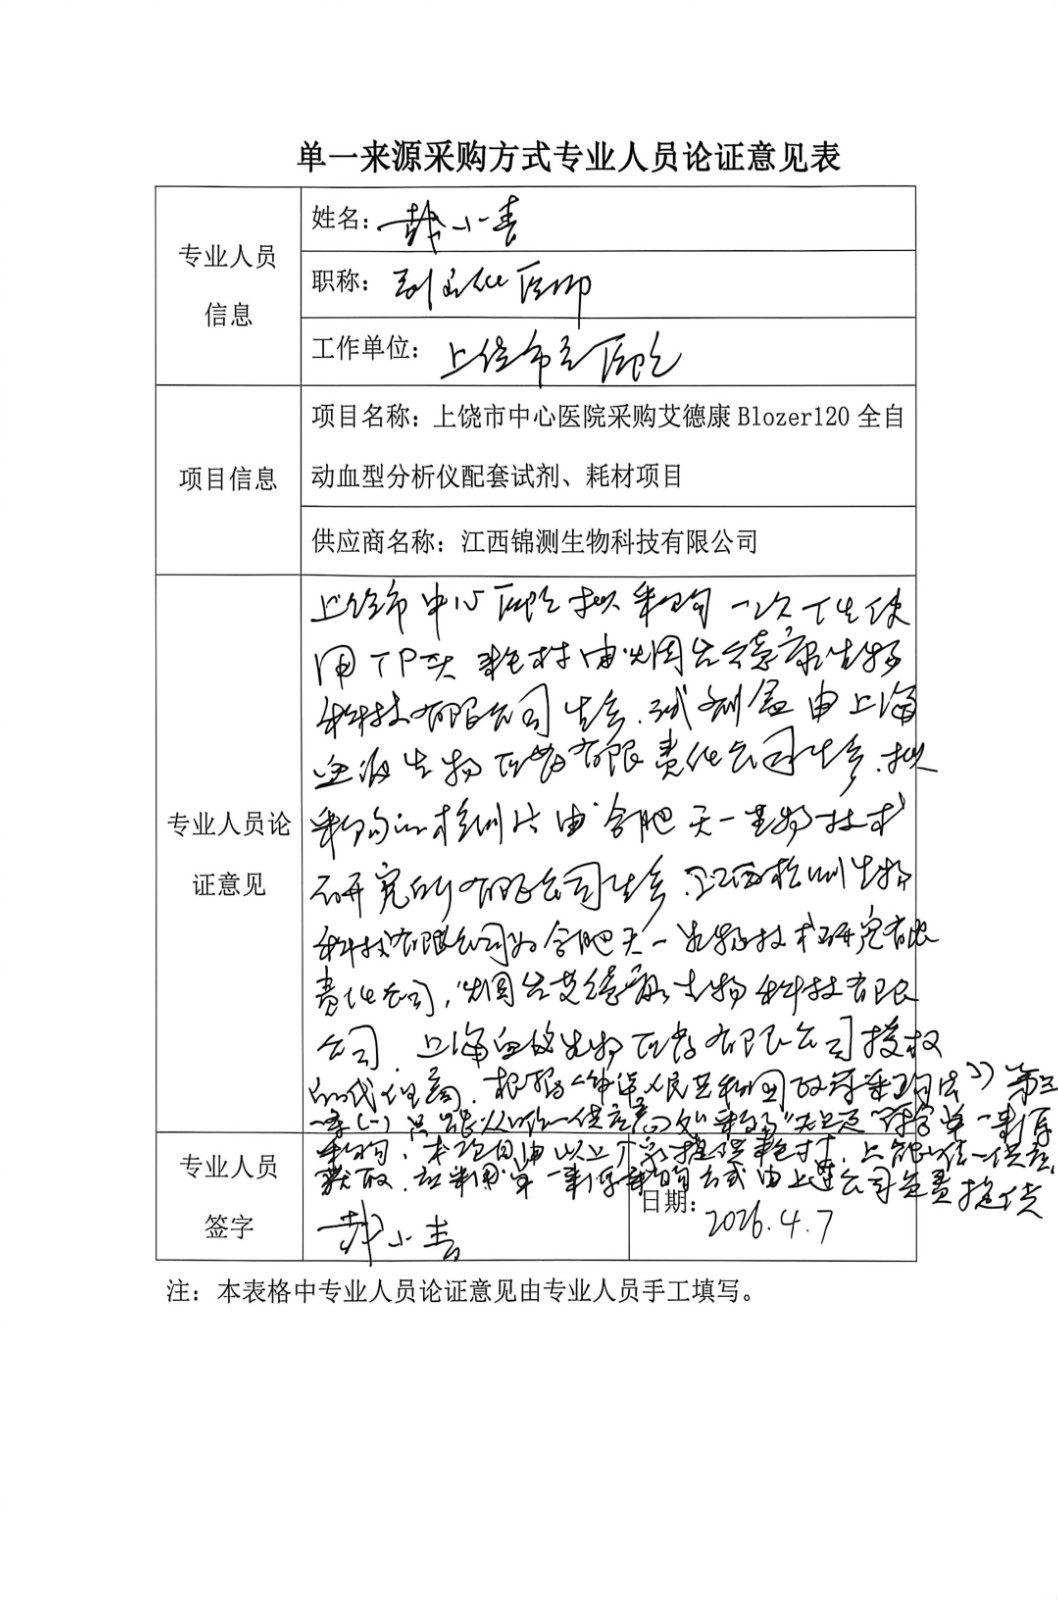 单一来源采购方式专业人员论证意见表
专业人员
信息
姓名：小春
职称：副主任医师
工作单位：上饶市立医院
项目信息
项目名称：上饶市中心医院采购艾德康 Blozer120 全自
动血型分析仪配套试剂、耗材项目
供应商名称：江西锦测生物科技有限公司
专业人员论
证意见
上饶市中心医院拟采购一次性使
用TP头耗材由烟台艾德康生物
科技有限公司生产.试剂盒由上海
血液生物医药有限责任公司生产.拟
采购的检测卡由合肥天一生物技术
研究所有限公司生产.江西锦测生物
科技有限公司为合肥天一生物技术研究所有限
责任公司，烟台艾德康生物科技有限
公司.上海血液生物医药有限公司授权
的代理商.根据《中华人民共和国政府采购法》第三十
一条(一)只能从唯一供应商处采购的"规定"符合单一来源
采购，本项目由以上厂家提供耗材，只能从唯一供应商
获取.应采用单一来源采购方式由上述公司负责提供
专业人员
签字
小春
日期：
2026.4.7
注：本表格中专业人员论证意见由专业人员手工填写。